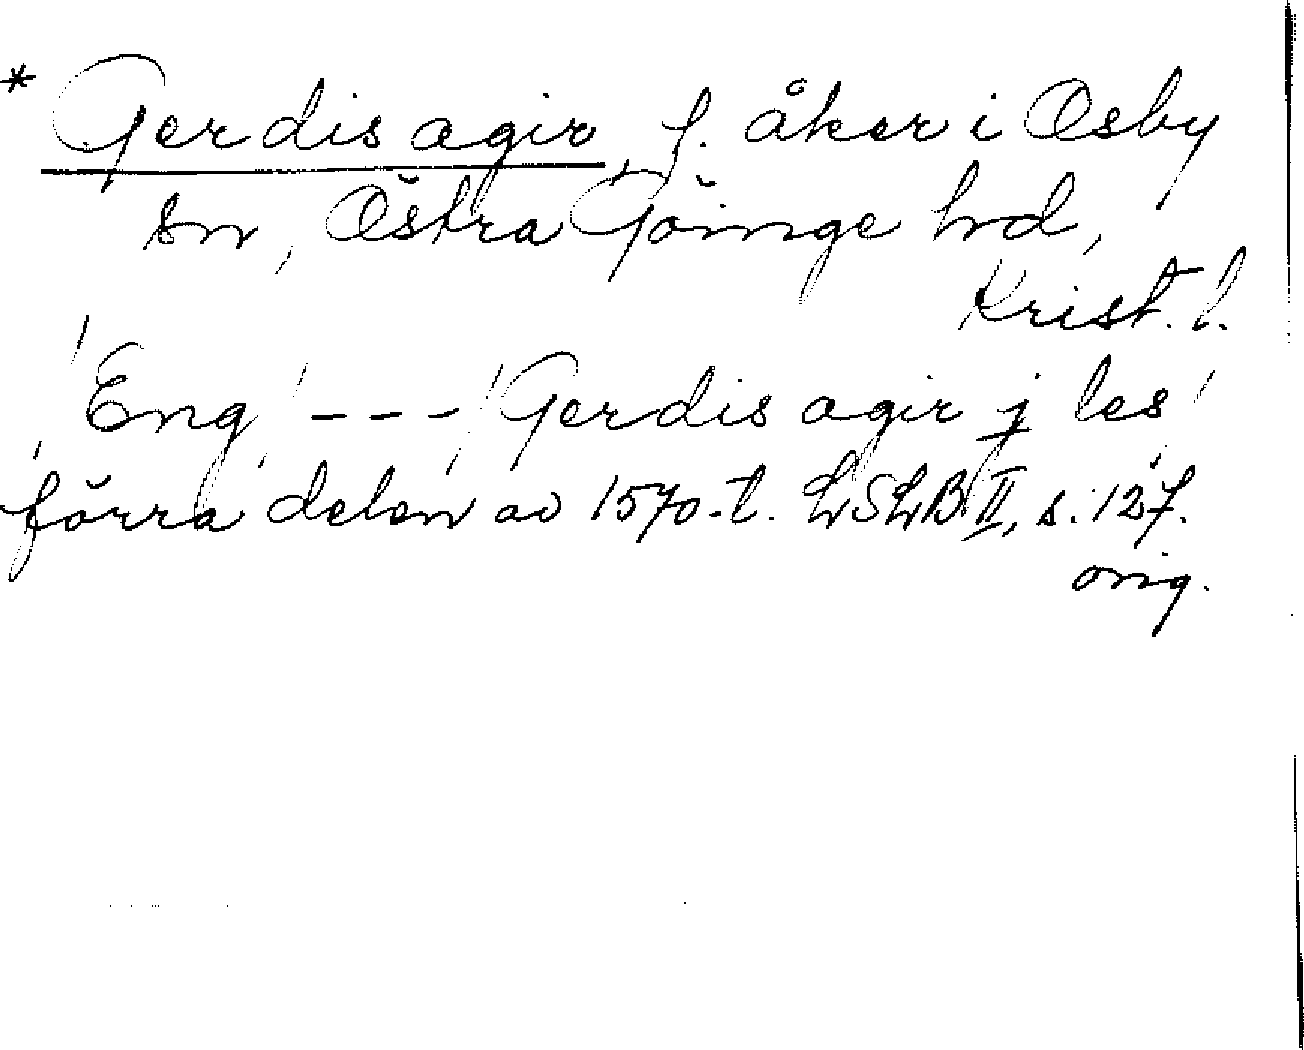 * Gerdis agir, f. åker i Osby
sn, Östra Göinge hd,
Krist. l.
'Eng' --- 'Gerdis agir j les'
förra delen av 1570-t. LSLB II, s. 127.
orig.